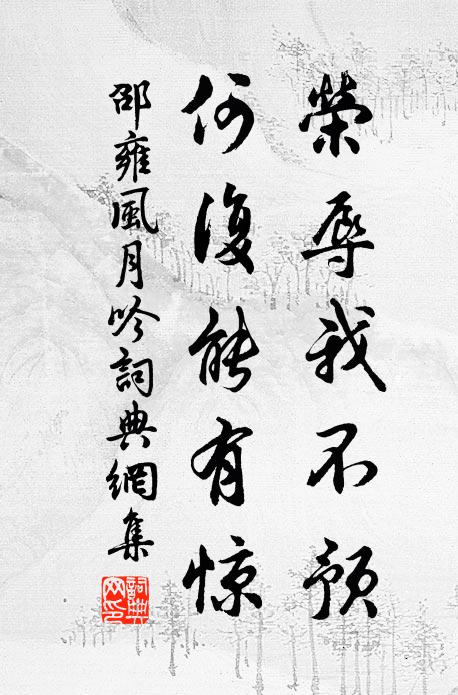 榮辱我不預
何復能有惊
邵雍風月吟詞典網集
詞典
文印